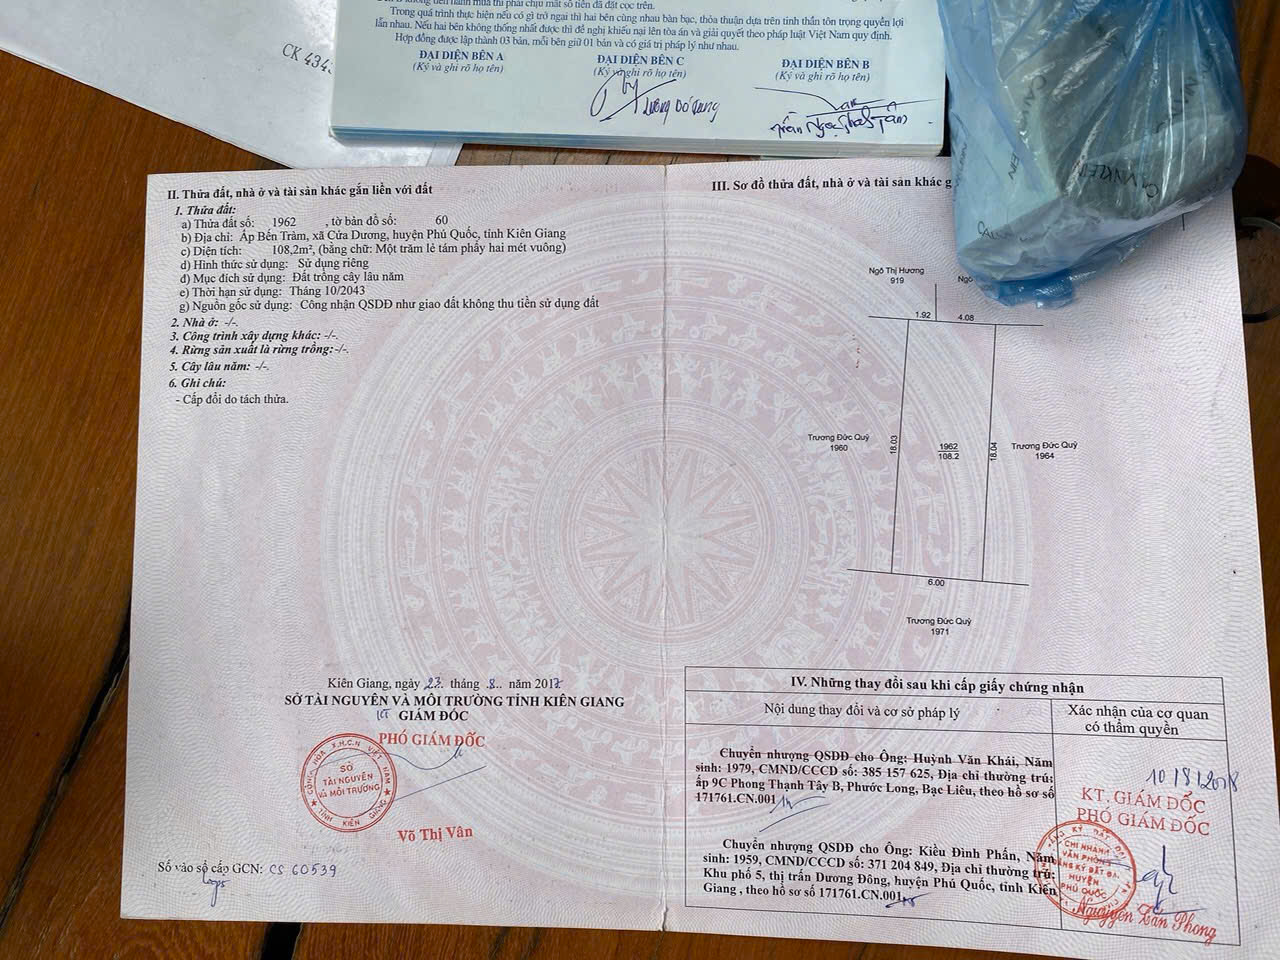 Trong quá trình thực hiện nếu có gì trở ngại thì hai bên cùng nhau bàn bạc, thỏa thuận dựa trên tinh thần tôn trọng quyền lợi
lẫn nhau. Nếu hai bên không thống nhất được thì đề nghị khiếu nại lên tòa án và giải quyết theo pháp luật Việt Nam quy định.
Hợp đồng được lập thành 03 bản, mỗi bên giữ 01 bản và có giá trị pháp lý như nhau.
ĐẠI DIỆN BÊN A
(Ký và ghi rõ họ tên)
ĐẠI DIỆN BÊN C
(Ký và ghi rõ họ tên)
ĐẠI DIỆN BÊN B
(Ký và ghi rõ họ tên)
CK 434
II. Thửa đất, nhà ở và tài sản khác gắn liền với đất
1. Thửa đất:
a) Thửa đất số: 1962 , tờ bản đồ số: 60
b) Địa chỉ: Ấp Bến Tràm, xã Cửa Dương, huyện Phú Quốc, tỉnh Kiên Giang
c) Diện tích: 108,2m², (bằng chữ: Một trăm lẻ tám phẩy hai mét vuông)
d) Hình thức sử dụng: Sử dụng riêng
đ) Mục đích sử dụng: Đất trồng cây lâu năm
e) Thời hạn sử dụng: Tháng 10/2043
g) Nguồn gốc sử dụng: Công nhận QSDĐ như giao đất không thu tiền sử dụng đất
2. Nhà ở: -/-.
3. Công trình xây dựng khác: -/-.
4. Rừng sản xuất là rừng trồng:-/-.
5. Cây lâu năm: -/-.
6. Ghi chú:
- Cấp đổi do tách thửa.
Kiên Giang, ngày 23. tháng .8.. năm 2017
SỞ TÀI NGUYÊN VÀ MÔI TRƯỜNG TỈNH KIÊN GIANG
KT GIÁM ĐỐC
PHÓ GIÁM ĐỐC
SỞ
TÀI NGUYÊN
và MÔI TRƯỜNG
Võ Thị Vân
Số vào sổ cấp GCN: CS 60539
III. Sơ đồ thửa đất, nhà ở và tài sản khác g
Ngô Thị Hương
919
Ngô
1.92
4.08
Trương Đức Quý
1960
18.03
1962
108.2
18.04
Trương Đức Quý
1964
6.00
Trương Đức Quý
1971
IV. Những thay đổi sau khi cấp giấy chứng nhận
Nội dung thay đổi và cơ sở pháp lý
Xác nhận của cơ quan
có thẩm quyền
Chuyển nhượng QSDĐ cho Ông: Huỳnh Văn Khải, Năm
sinh: 1979, CMND/CCCD số: 385 157 625, Địa chỉ thường trú:
ấp 9C Phong Thạnh Tây B, Phước Long, Bạc Liêu, theo hồ sơ số
171761.CN.001
Chuyển nhượng QSDĐ cho Ông: Kiều Đình Phấn, Năm
sinh: 1959, CMND/CCCD số: 371 204 849, Địa chỉ thường trú:
Khu phố 5, thị trấn Dương Đông, huyện Phú Quốc, tỉnh Kiên
Giang , theo hồ sơ số 171761.CN.001
10/8/2018
KT, GIÁM ĐỐC
PHÓ GIÁM ĐỐC
CHI NHÁNH
VĂN PHÒNG
ĐĂNG KÝ ĐẤT ĐAI
HUYỆN
PHÚ QUỐC
Nguyễn Tấn Phong